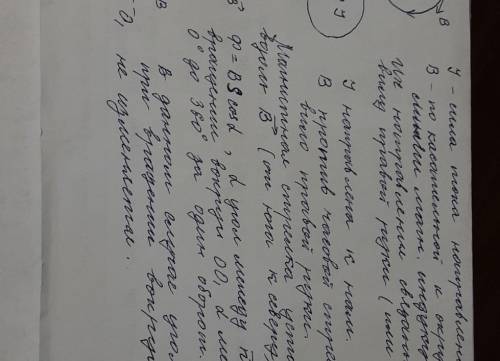 B
У - сила тока направлен
B - по касательной к окр
линии магн. индукц
Их направления связан
вилу правой руки (или
У
У направлена к нам.
B против часовой стре
вило правой руки.
Магнитная стрелка уст
вдоль B (от юга к северу
3 Ф = BS cos α, α угол между n
вращении вокруг OO, α ме
0° до 360° за один оборот.
B
В данном случае угол
при вращении вокруг
=0, не изменяется.